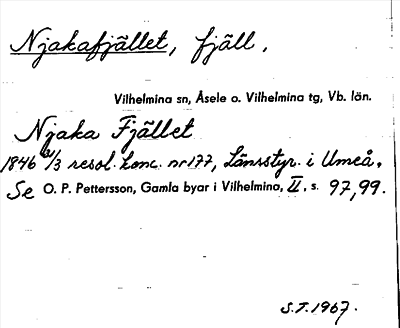 Njakafjället, fjäll.
Vilhelmina sn, Åsele o. Vilhelmina tg, Vb. län.
Njaka Fjället
1846 4/3 resol. konc. nr 177, Länsstyr. i Umeå.
Se O. P. Pettersson, Gamla byar i Vilhelmina, II, s. 97, 99.
S.F. 1967.